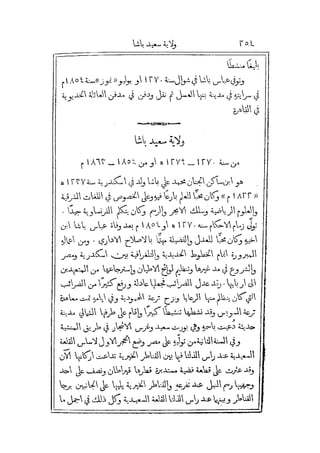 ٢٥٤ ولاية سعيد باشا
بليغًا منشطًا
وتوفي عباس باشا في شوال سنة ١٢٧٠ او يوليو «تموز» سنة ١٨٥٤ م
في سرايته في مدينة بنها العسل ثم نقل ودفن في مدفن العائلة الخديوية
في القاهرة
ولاية سعيد باشا
من سنة ١٢٧٠ — ١٢٧٩ ه او من ١٨٥٤ — ١٨٦٣ م
هو ابن ساكن الجنان محمد علي باشا ولد في اسكندرية سنة ١٢٣٧ ه
«١٨٢٢ م» وكان محبًّا للعلم بارعًا فيه وعلى الخصوص في اللغات الشرقية
والعلوم الرياضية وسلك الابحر والرسم وكان يتكلم الفرنساوية جيدًا.
تولى زمام الاحكام سنة ١٢٧٠ ه او ١٨٥٤ م بعد وفاة عباس باشا ابن
اخيه وكان محبًّا للعدل والفضيلة مهتمًّا بالاصلاح الاداري. ومن اعماله
المبرورة اتمام الخطوط الحديدية والتلغرافية بين اسكندرية ومصر
والشروع في مد غيرها وتنظيم لوائح الاطيان واسترجاعها من المتعهدين
الى اربابها. وتعديل الضرائب تجعلها عادلة ورفع كثيرًا من الضرائب
التي كان يتظلم منها الرعايا ونزح ترعة المحمودية وفي ايامه تمت معاهدة
ترعة السويس وقد نشطها تنشيطًا كثيرًا واقام على طرفها الشمالي مدينة
حديثة دُعيت باسمه وهي بورت سعيد وغرس الاشجار في طريق المنشية
وفي السنة الثانية من توليه على مصر وضع الحجر الاول لاساس القلعة
السعيدية عند راس الدلتا فيما بين القناطر الخيرية تداعت اركانها الآن
وقد عثرت على قطعة فضية مستديرة قطرها قيراطان ونصف على احد
وجهيها رسم النيل عند تفرعه والقناطر الخيرية يليها على الجانبين برجا
القناطر وبينهما عند راس الدلتا القلعة السعيدية وكل ذلك في اجمل ما